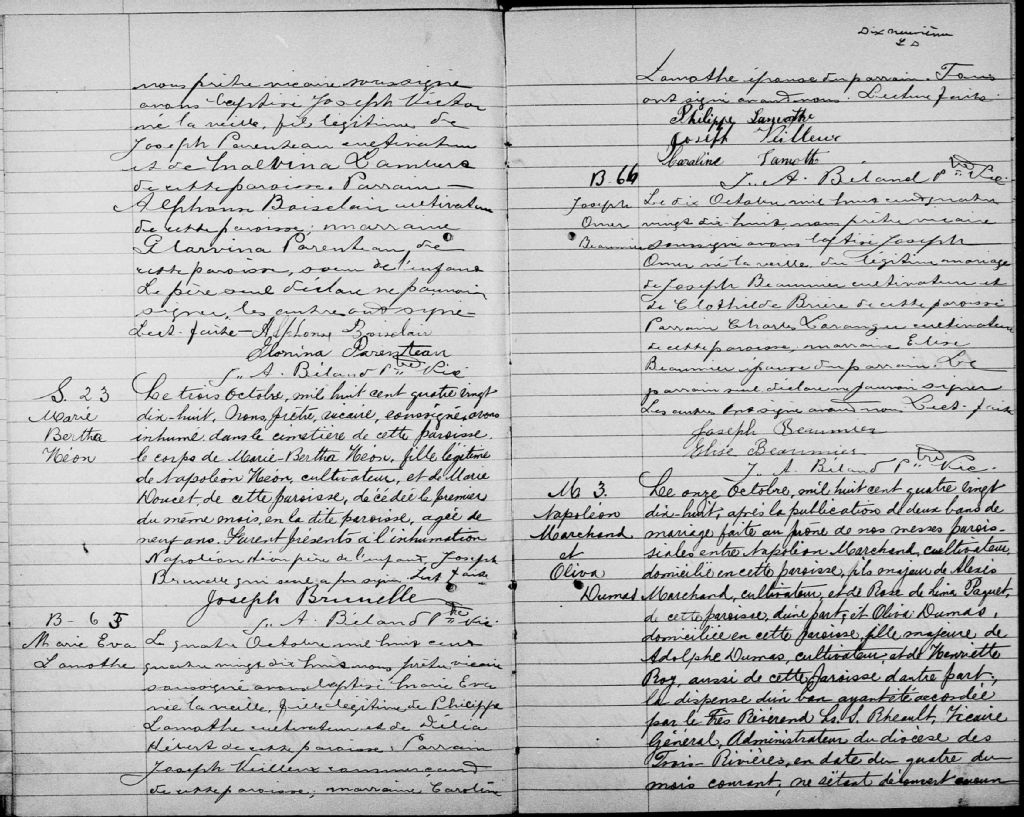 nous prêtre vicaire soussigné
avons baptisé Joseph Victor
né la veille, fils légitime de
Joseph Parenteau cultivateur
et de Malvina Lambert
de cette paroisse. Parrain —
Alphonse Boisclair cultivateur
de cette paroisse; marraine
Parenteau, de
cette paroisse, soeur de l'enfant
Le père seul déclare ne pouvoir
signer, les autres ont signé
Lect. faite — Alphonse Boisclair
Parenteau
J. A. Béland Ptre Vic
S. 23
Marie
Bertha
Héon
Le trois Octobre, mil huit cent quatre vingt
dix-huit, Nous, prêtre, vicaire, soussigné, avons
inhumé dans le cimetière de cette paroisse,
le corps de Marie-Bertha Héon, fille légitime
de Napoléon Héon, cultivateur, et de Marie
Doucet de cette paroisse, décédée le premier
du même mois, en la dite paroisse, agée de
neuf ans. Furent présents à l'inhumation
Napoléon Héon père de l'enfant, Joseph
Brunelle qui seul a pu signer. Lect. faite
Joseph Brunelle
J. A. Béland Ptre Vic.
B - 65
Marie Eva
Lamothe
Le quatre Octobre mil huit cent
quatre vingt dix huit nous prêtre vicaire
soussigné avons baptisé Marie Eva
née la veille, fille légitime de Philippe
Lamothe cultivateur et de Délia
Hébert de cette paroisse. Parrain
Joseph Veilleux commerçant
de cette paroisse; marraine Caroline
Dix neuvième
Lamothe épouse du parrain. Tous
ont signé avec nous. Lecture faite.
Philippe Lamothe
Joseph Veilleux
Caroline Lamoth
J. A. Béland Ptre Vic
B. 66
Joseph
Omer
Beaumier
Le dix Octobre mil huit cent quatre
vingt dix huit, nous prêtre vicaire
soussigné avons baptisé Joseph
Omer né la veille du légitime mariage
de Joseph Beaumier cultivateur et
de Clothilde Brière de cette paroisse
Parrain Charles Laranger cultivateur
de cette paroisse, marraine Elise
Beaumier épouse du parrain. Le
parrain seul déclare ne pouvoir signer
Les autres ont signé avec nous Lect. faite
Joseph Beaumier
Elise Beaumier
J. A. Béland Ptre Vic.
M 3.
Napoléon
Marchand
et
Oliva
Dumas
Le onze Octobre, mil huit cent quatre vingt
dix-huit, après la publication de deux bans de
mariage faite au prône de nos messes parois-
siales entre Napoléon Marchand, cultivateur,
domicilié en cette paroisse, fils majeur de Alexis
Marchand, cultivateur, et de Rose de Lima Paquet,
de cette paroisse, d'une part, et Oliva Dumas,
domiciliée en cette paroisse, fille majeure de
Adolphe Dumas, cultivateur, et de Henriette
Roy, aussi de cette paroisse d'autre part;
la dispense d'un ban ayant été accordée
par le Très Révérend Ls. S. Rheault, Vicaire
Général, Administrateur du diocèse des
Trois-Rivières, en date du quatre du
mois courant; ne s'étant découvert aucun